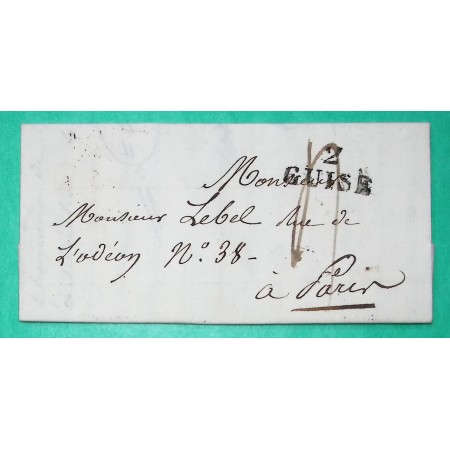 2
GUISE
Monsieur
Monsieur Lebel Rue de
L'odéon N.o 38-
à Paris